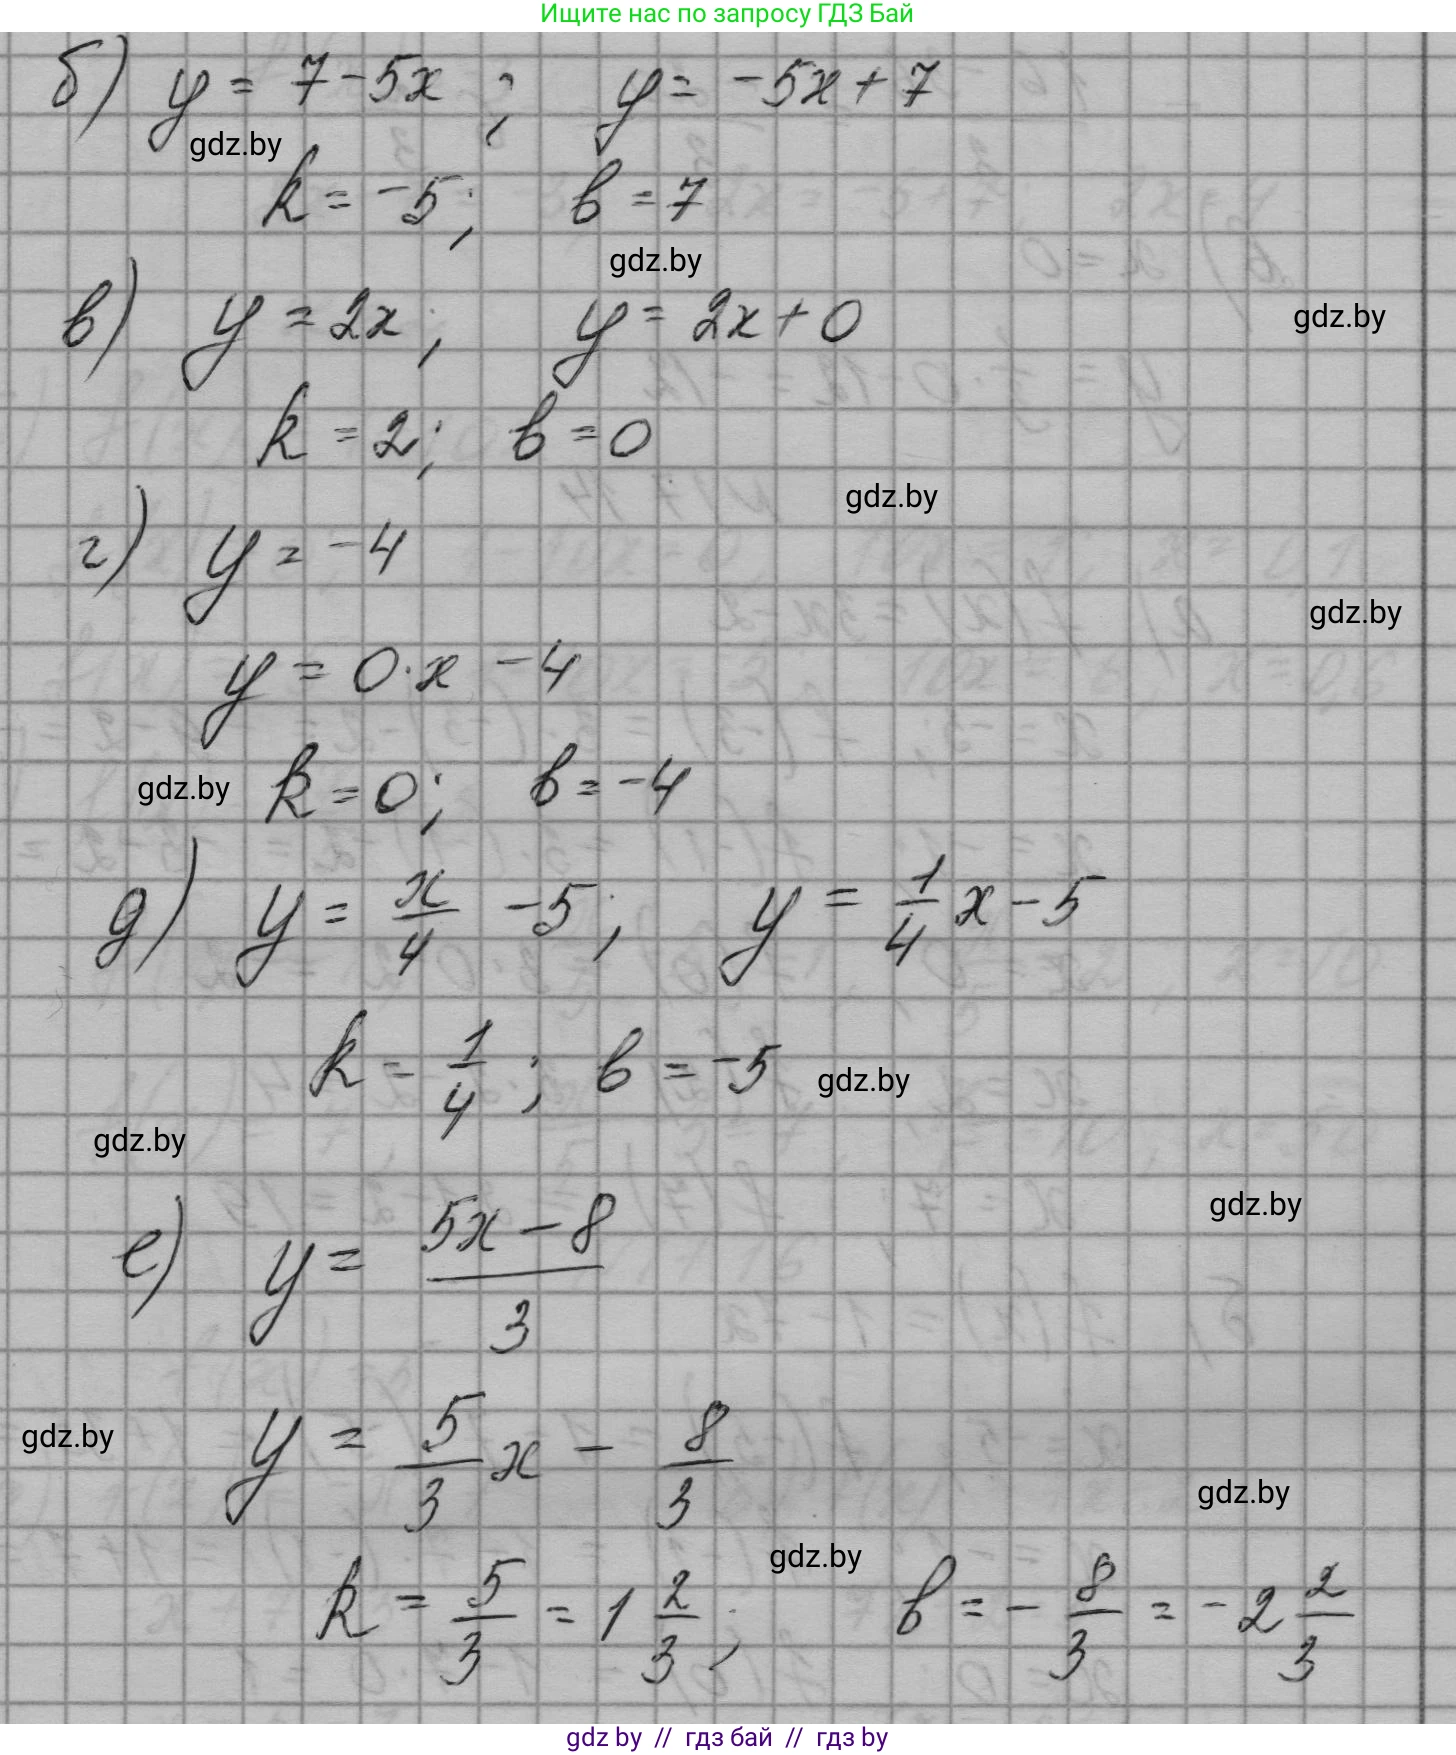 Ищите нас по запросу ГДЗ Бай
б) y = 7-5x ; y = -5x+7
gdz.by
k = -5; b = 7
gdz.by
в) y = 2x; y = 2x+0
gdz.by
k = 2; b = 0
gdz.by
г) y = -4
gdz.by
y = 0·x -4
gdz.by
k = 0; b = -4
д) y = x/4 -5; y = 1/4 x-5
k = 1/4 ; b = -5
gdz.by
gdz.by
gdz.by
е) y = (5x-8)/3
gdz.by
y = 5/3 x - 8/3
gdz.by
gdz.by
k = 5/3 = 1 2/3 ; b = - 8/3 = -2 2/3
gdz by // гдз бай // гдз by